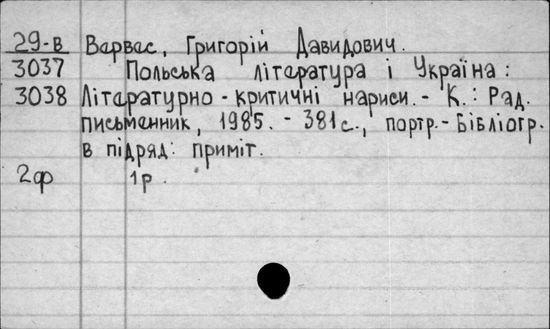 29-в Варвас, Григорій Давидович.
3037 Польська література і Україна:
3038 Літературно-критичні нариси.- К.: Рад.
письменник, 1985.- 381с., портр.-Бібліогр.
в підряд: приміт.
2ф 1р.